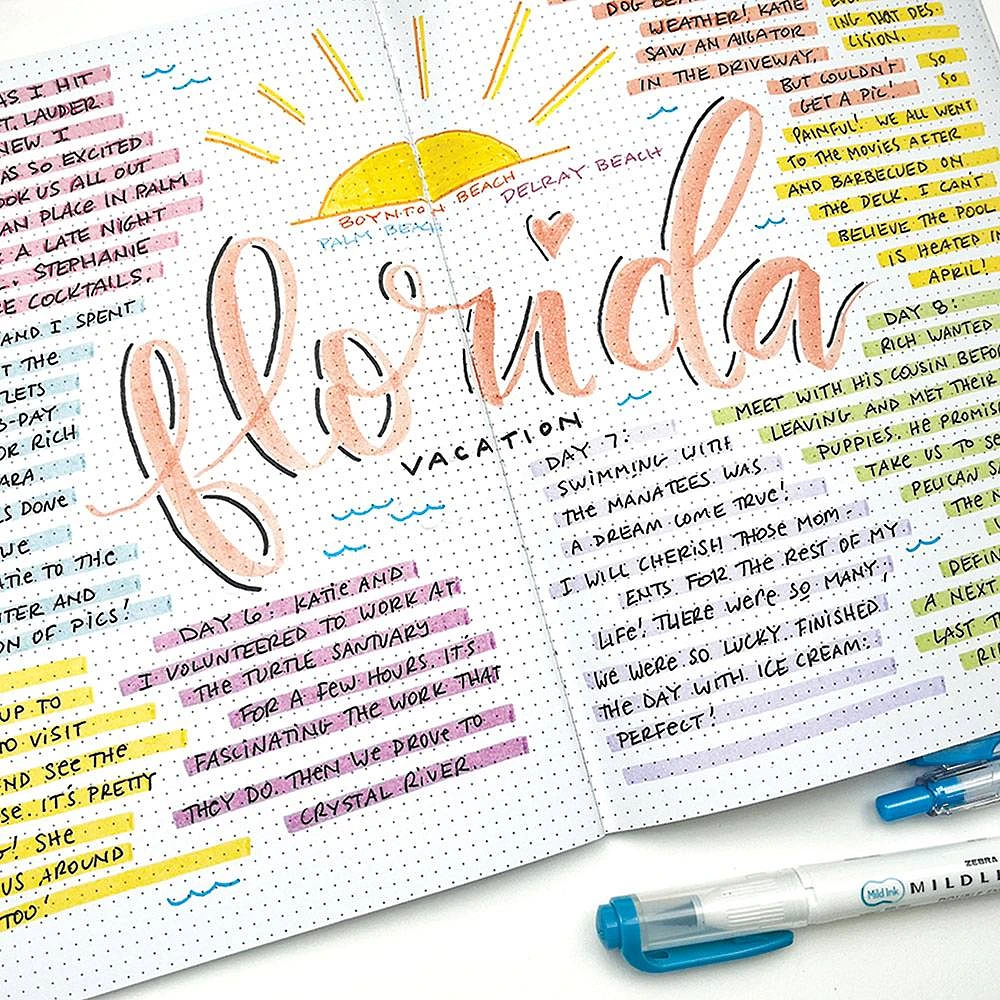 AS I HIT
FT. LAUDER.
NEW I
AS SO EXCITED
OOK US ALL OUT
AN PLACE IN PALM
A LATE NIGHT
STEPHANIE
RE COCKTAILS.
AND I SPENT
T THE
TLETS
3-DAY
OR RICH
ARA.
LS DONE
WE
ATIE TO THE
NTER AND
ON OF PICS!
UP TO
TO VISIT
AND SEE THE
SE. IT'S PRETTY
G! SHE
US AROUND
TOO!
BOYNTON BEACH
DELRAY BEACH
PALM BEACH
florida
VACATION
DAY 6: KATIE AND
I VOLUNTEERED TO WORK AT
THE TURTLE SANTUARY
FOR A FEW HOURS. IT'S
FASCINATING THE WORK THAT
THEY DO. THEN WE PROVE TO
CRYSTAL RIVER.
DOG BEA
WEATHER! KATIE
SAW AN AlIGATOR
IN THE DRIVEWAY,
BUT COULDN'T
GET A PIC!
ING THAT DES.
LISION.
SO
SO
PAINFUL! WE ALL WENT
TO THE MOVIES AFTER
AND BARBECUED ON
THE DECK. I CAN'T
BELIEVE THE POOL
IS HEATED IN
APRIL!
DAY 7:
SWIMMING WITH
THE MANATEES WAS
A DREAM COME TRUE!
I WILL CHERISH THOSE MOM-
ENTS FOR THE REST OF MY
LIFE! THERE WERE SO MANY,
WE WERE SO LUCKY. FINISHED
THE DAY WITH ICE CREAM:
PERFECT!
DAY 8:
RICH WANTED
MEET WITH HIS COUSIN BEFOR
LEAVING AND MET THEIR
PUPPIES. HE PROMISE
TAKE US TO SE
PELICAN SA
THE N
DEFIN
A NEXT
LAST T
RI
ZEBRA
Mild Ink
MILDLI